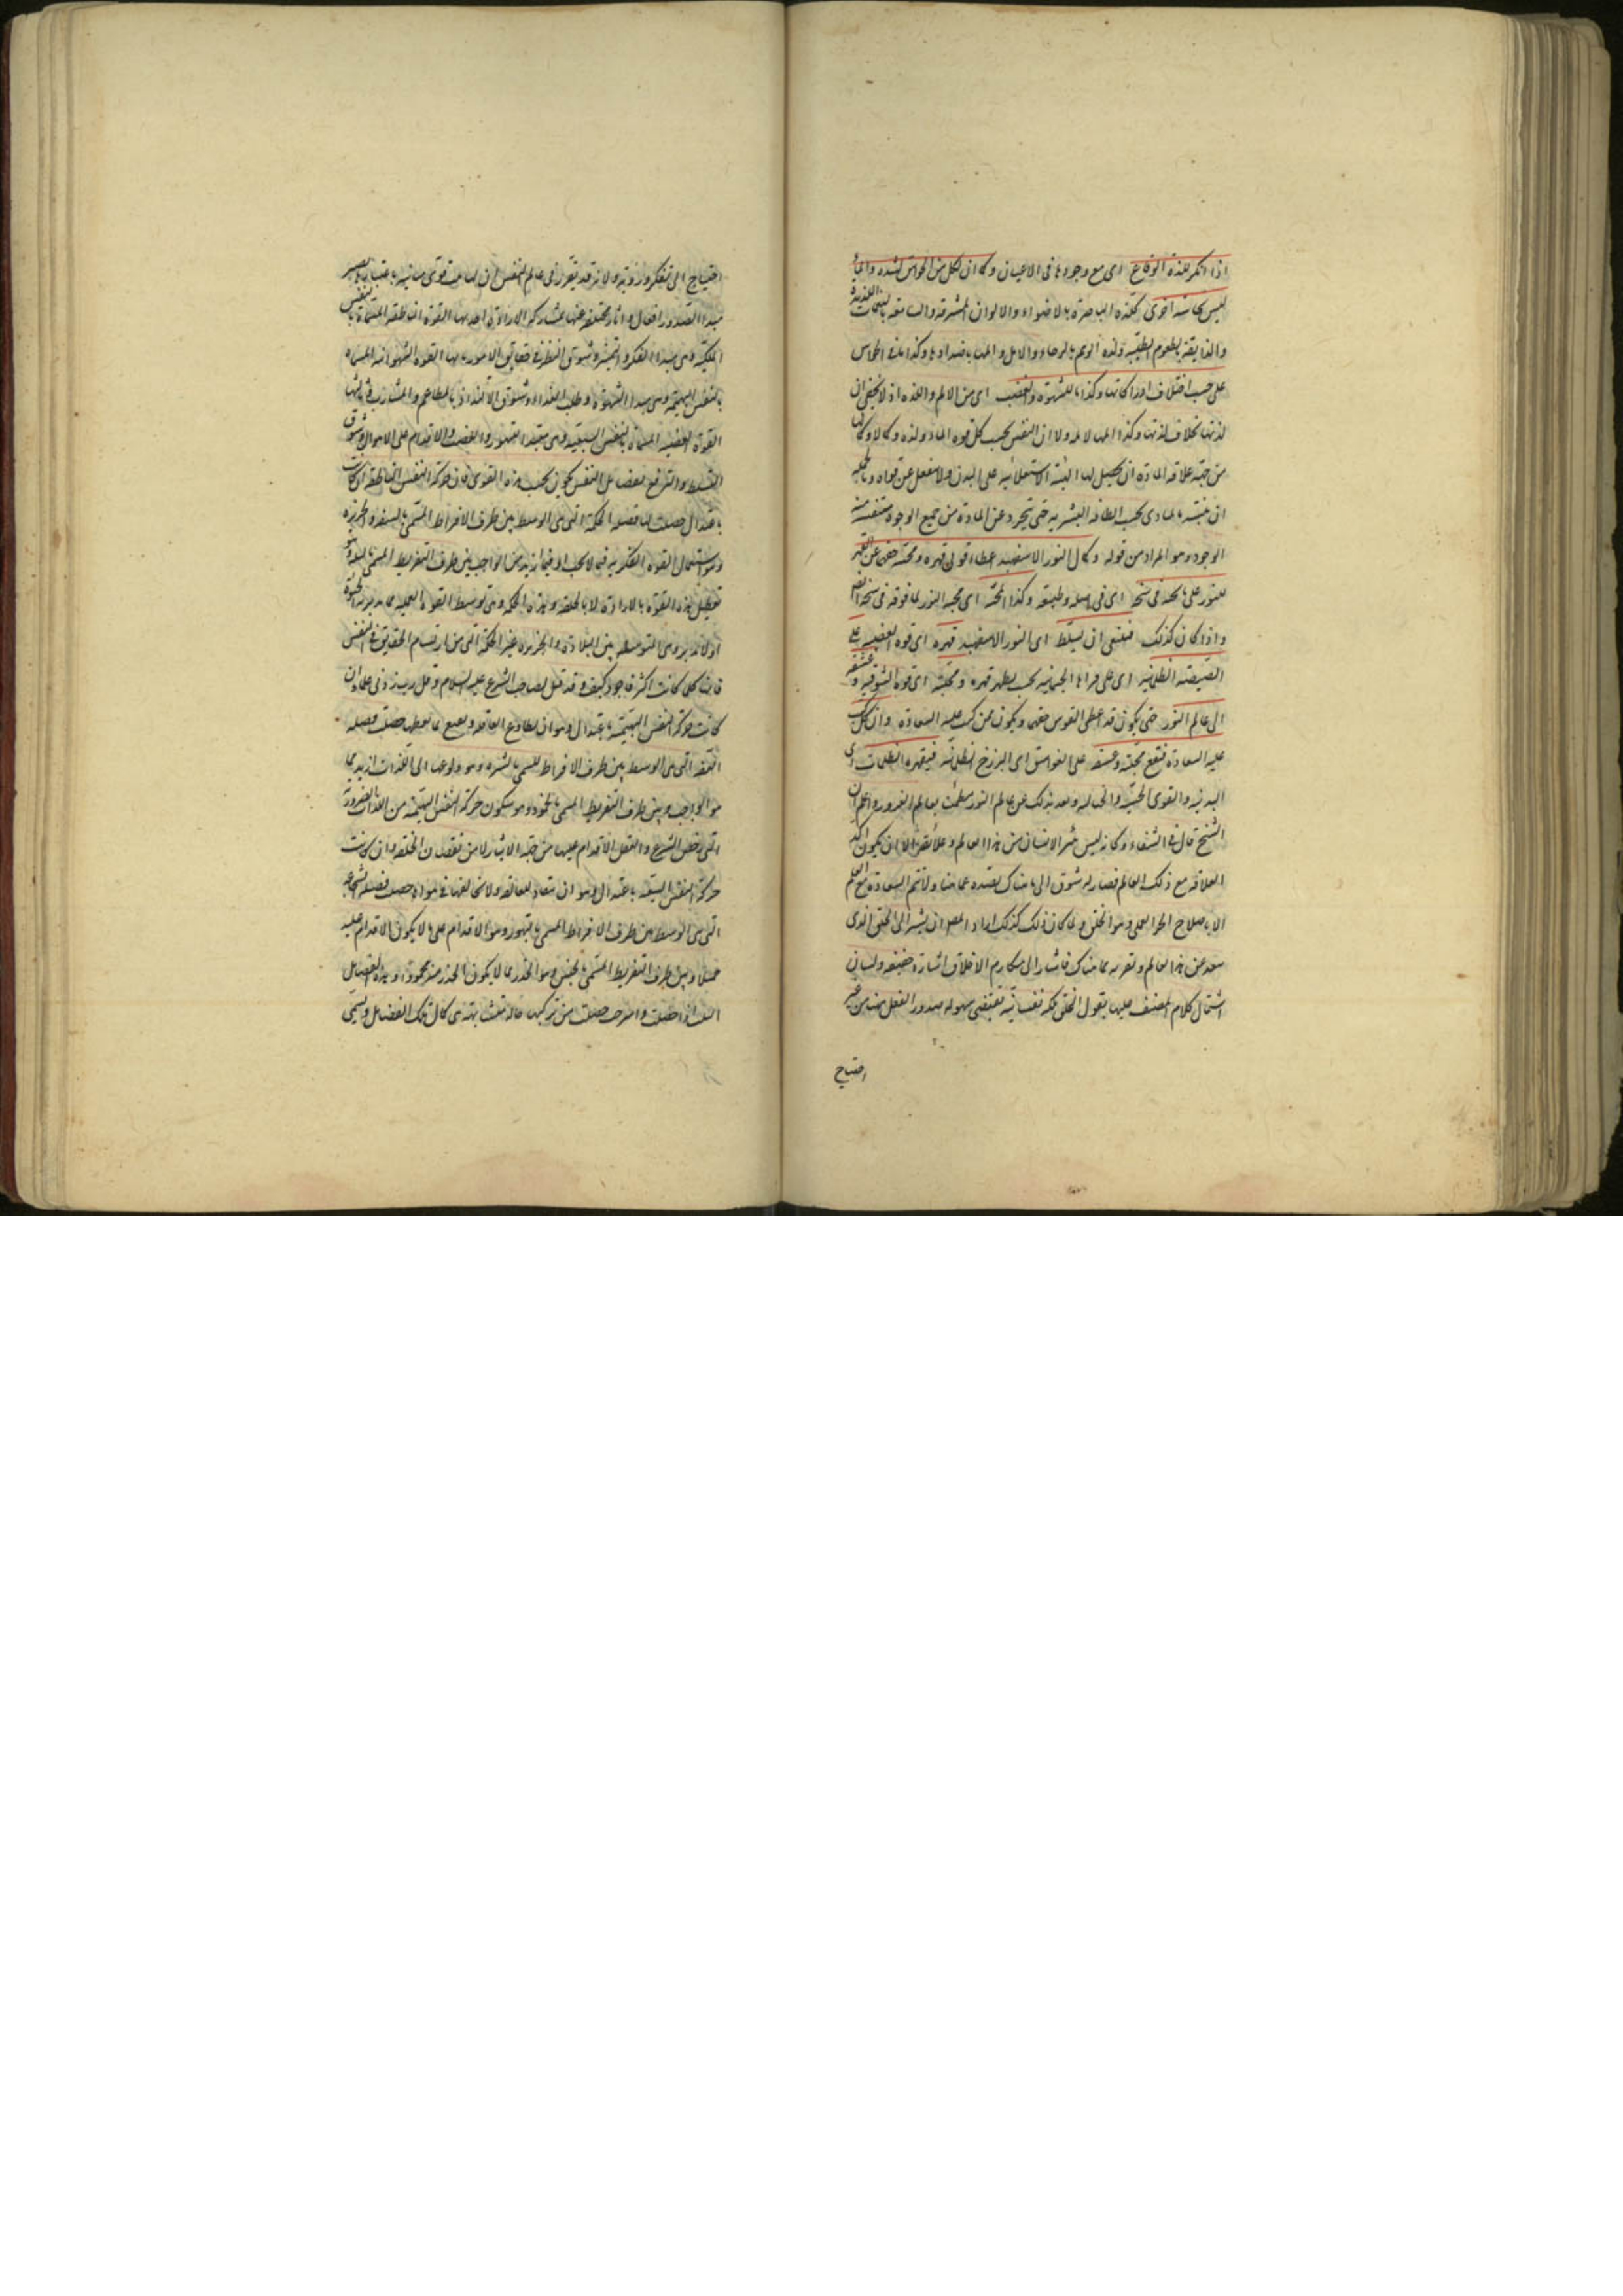 اذا انكر لذة الوقاع اى مع وجودها فى الاعيان وكما ان لكل من الحواس لذة و
ليس لحاسة اخرى كلذة الباصرة بالاضواء والالوان المشرقة والسامعة بالنغمات اللذيذة
والذايقة بالطعوم الطيبة ولذة الوهم بالرجاء والامل والمها باضدادها وكذا باقى الحواس
على حسب اختلاف ادراكاتها وكذا ما للشهوة والغضب اى من الالم واللذة اذ لا يخفى ان
لذتها بخلاف لذتها وكذا المها لا بد ولا ان النفس بحسب كل قوة الما ولذة وكمالا وكمالها
من جهة علاقة المادة ان يحصل لها الهيئة الاستعلائية على البدن ولا تنفعل عن قواه وبالجملة
ان بالمبادى بحسب الطاقة البشرية حتى تتجرد عن المادة من جميع الوجوه منتقشة
الوجود وهو المراد من قوله وكمال النور الاسفهبد اعطاء قوتى قهره ومحبته حقهما فان القهر
للنور على ما تحته فى سنخه اى فى اصله وطبيعته وكذا المحبة اى محبة النور لما فوقه فى سنخه ايضا
واذا كان كذلك فينبغى ان يسلط اى النور الاسفهبد قهره اى قوة الغضبية على
الصيصية الظلمانية اى على قواها الجسمانية بحيث يظهر قهره ومحبته اى قوة الشوقية وعشقه
الى عالم النور حتى يكون قد اعطى القوتين حقهما ويكون ممن كتب عليه السعادة وان كتب
عليه السعادة فتقع محبته وعشقه على الغواسق اى البرازخ الظلمانية فيقهره الظلمات اى
البدنية والقوى الحسية والخيالية وبعد بذلك عن عالم النور مطمئنا بعالم الغرور واعلم ان
الشيخ قال فى الشفاء وكانه ليس يتبرأ الانسان من هذا العالم وعلائقه الا ان يكون اكد
العلاقة مع ذلك العالم فصار له شوق الى ما هناك يصده عما هنا ولا تتم السعادة مع العلم
الا باصلاح الجزء العملى وهو الخلق ولما كان ذلك كذلك اراد المصنف ان يشير الى الخلق الذى
يبعد عن هذا العالم ويقربه مما هناك فاشار الى مكارم الاخلاق اشارة خفيفة ولبيان
اشتمال كلام المصنف عليها يقول الخلق ملكة نفسانية تقتضى سهولة صدور الفعل عنها من غير
احتياج
احتياج الى تفكر وروية ولانه قد تقرر فى علم النفس ان لها ثلث قوى متباينة باعتبارها يصير
مبدأ لصدور افعال واثار مختلفة عنها بمشاركة الارادة احديها القوة الناطقة المسماة بالنفس
الملكية وهى مبدأ الفكر والتميز وشوق النظر فى حقايق الامور وثانيها القوة الشهوانية المسماة
بالنفس البهيمية وهى مبدأ الشهوة وطلب الغذاء وشوق الالتذاذ بالمطاعم والمشارب وثالثها
القوة الغضبية المسماة بالنفس السبعية وهى مبدأ التهور والغضب والاقدام على الاهوال وشوق
التسلط والترفع ففضائل النفس يكون بحسب هذه القوى فان حركة النفس الناطقة اذا كانت
باعتدال حصلت لها فضيلة الحكمة التى هى الوسط بين طرف الافراط المسمى بالسفه والجربزة
وهو استعمال القوة الفكرية فيما لا يجب او فيما زيد من الواجب وبين طرف التفريط المسمى بالبله وهو
تعطيل هذه القوة بالارادة لا بالخلقة وهذه الحكمة وهى توسط القوة العملية بما يدبر به الحيوة
اولا تدبر وهى المتوسطة بين البلادة والجربزة غير الحكمة التى هى ارتسام الحقايق فى النفس
فانها كلما كانت اكثر فاجود كيف وقد قيل لصاحب الشرع عليه السلام وقل رب زدنى علما وان
كانت حركة النفس البهيمية باعتدال وهو ان يطاوع العاقلة ويقنع بما تعطيها حصلت فضيلة
العفة التى هى الوسط بين طرف الافراط المسمى بالشره وهو ولوعها الى اللذات ازيد مما
هو الواجب وبين طرف التفريط المسمى بالخمود وهو سكون حركة النفس البهيمية من اللذات الضرورية
التى رخص الشرع والعقل الاقدام عليها من جهة الايثار لا من نقصان الخلقة وان كانت
حركة النفس السبعية باعتدال وهو ان ينقاد للعاقلة ولا يخالفها فى هواه حصلت فضيلة الشجاعة
التى هى الوسط بين طرف الافراط المسمى بالتهور وهو الاقدام على ما لا يكون الاقدام عليه
جميلا وبين طرف التفريط المسمى بالجبن وهو الحذر مما لا يكون الحذر منه محمودا وهذه الفضايل
الثلث اذا حصلت وامتزجت حصلت من تركيبها حالة متشابهة هى كمال تلك الفضايل ويسمى